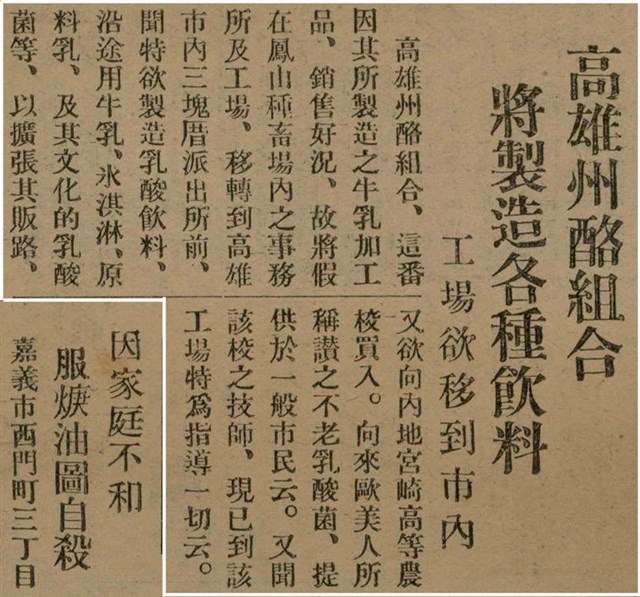 高雄州酪組合
將製造各種飲料
工場欲移到市內
高雄州酪組合、這番
因其所製造之牛乳加工
品、銷售好況、故將假
在鳳山種畜場內之事務
所及工場、移轉到高雄
市內三塊厝派出所前、
聞特欲製造乳酸飲料、
沿途用牛乳、氷淇淋、原
料乳、及其文化的乳酸
菌等、以擴張其販路、
又欲向內地宮崎高等農
校買入。向來歐美人所
稱讃之不老乳酸菌、提
供於一般市民云。又聞
該校之技師、現已到該
工場特爲指導一切云。
因家庭不和
服㷔油圖自殺
嘉義市西門町三丁目